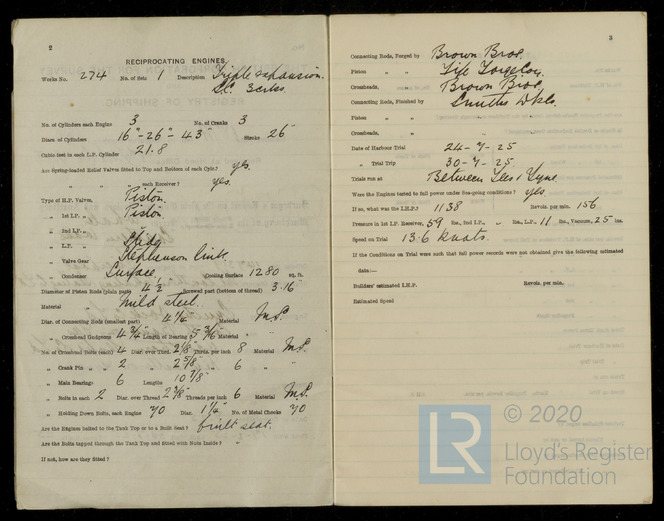 2
RECIPROCATING ENGINES.
Works No. 274 No. of Sets 1 Description Triple expansion.
S.C. 3 crks.
No. of Cylinders each Engine 3 No. of Cranks 3
Diars. of Cylinders 16"-26"-43" Stroke 26"
Cubic feet in each L.P. Cylinder 21.8
Are Spring-loaded Relief Valves fitted to Top and Bottom of each Cylr.? yes.
" " " each Receiver? yes.
Type of H.P. Valves, Piston.
" 1st I.P. " Piston
" 2nd I.P. "
" L.P. " Slide
" Valve Gear Stephenson link.
" Condenser Surface, Cooling Surface 1280 sq. ft.
Diameter of Piston Rods (plain part) 4½ Screwed part (bottom of thread) 3.16"
Material Mild steel.
Diar. of Connecting Rods (smallest part) 4¼" Material M.S.
" Crosshead Gudgeons 4¾" Length of Bearing 5 3/16" Material "
No. of Crosshead Bolts (each) 4 Diar. over Thrd. 2⅛" Thrds. per inch 8 Material M.S.
" Crank Pin " " 2 " 2⅝" " 6 " "
" Main Bearings 6 Lengths 10⅞"
" Bolts in each 2 Diar. over Thread 2⅜" Threads per inch 6 Material M.S.
" Holding Down Bolts, each Engine 70 Diar. 1¼" No. of Metal Chocks 70
Are the Engines bolted to the Tank Top or to a Built Seat? built seat.
Are the Bolts tapped through the Tank Top and fitted with Nuts Inside? "
If not, how are they fitted?
3
Connecting Rods, Forged by Brown Bros.
Piston " " Fife Forge Co.
Crossheads, " Brown Bros.
Connecting Rods, Finished by Smiths Dks.
Piston " "
Crossheads, " "
Date of Harbour Trial 24-7-25
" Trial Trip 30-7-25
Trials run at Between Tees & Tyne
Were the Engines tested to full power under Sea-going conditions? yes
If so, what was the I.H.P.? 1138 Revols. per min. 156
Pressure in 1st I.P. Receiver, 59 lbs., 2nd I.P., " lbs., L.P., 11 lbs., Vacuum, 25 ins.
Speed on Trial 13.6 knots.
If the Conditions on Trial were such that full power records were not obtained give the following estimated
data:—
Builders' estimated I.H.P. Revols. per min.
Estimated Speed
LR © 2020
Lloyd's Register
Foundation